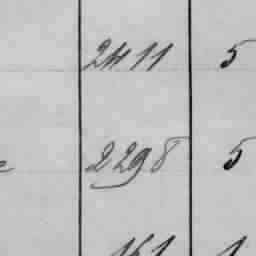 2411 5
2298 5
161 1